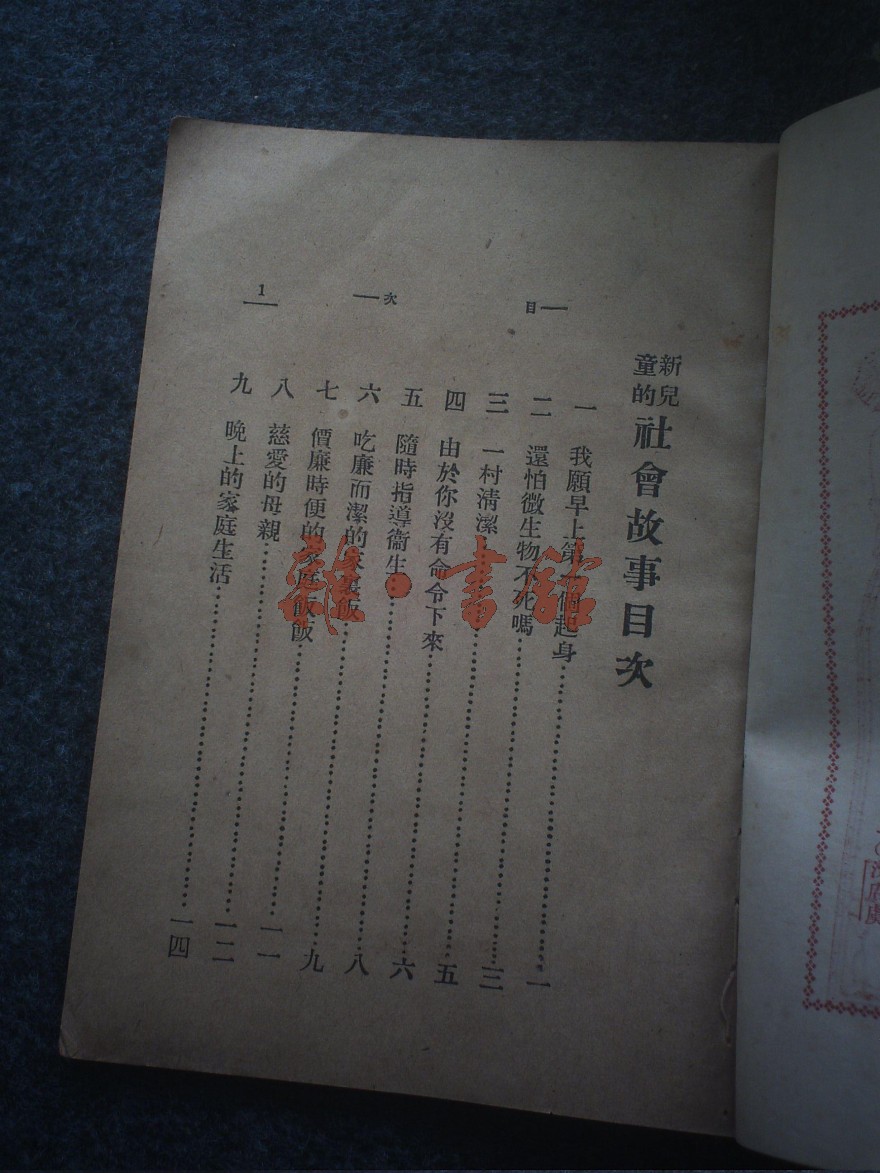 新兒童的 社會故事目次
一 我願早上第一個起身……一
二 還怕微生物不死嗎……三
三 一村清潔……五
四 由於你沒有命令下來……六
五 隨時指導衞生……八
六 吃廉而潔的飯……九
七 價廉時便的家庭飯飯……一一
八 慈愛的母親……一二
九 晚上的家庭生活……一四
目
次
1
雜·書館